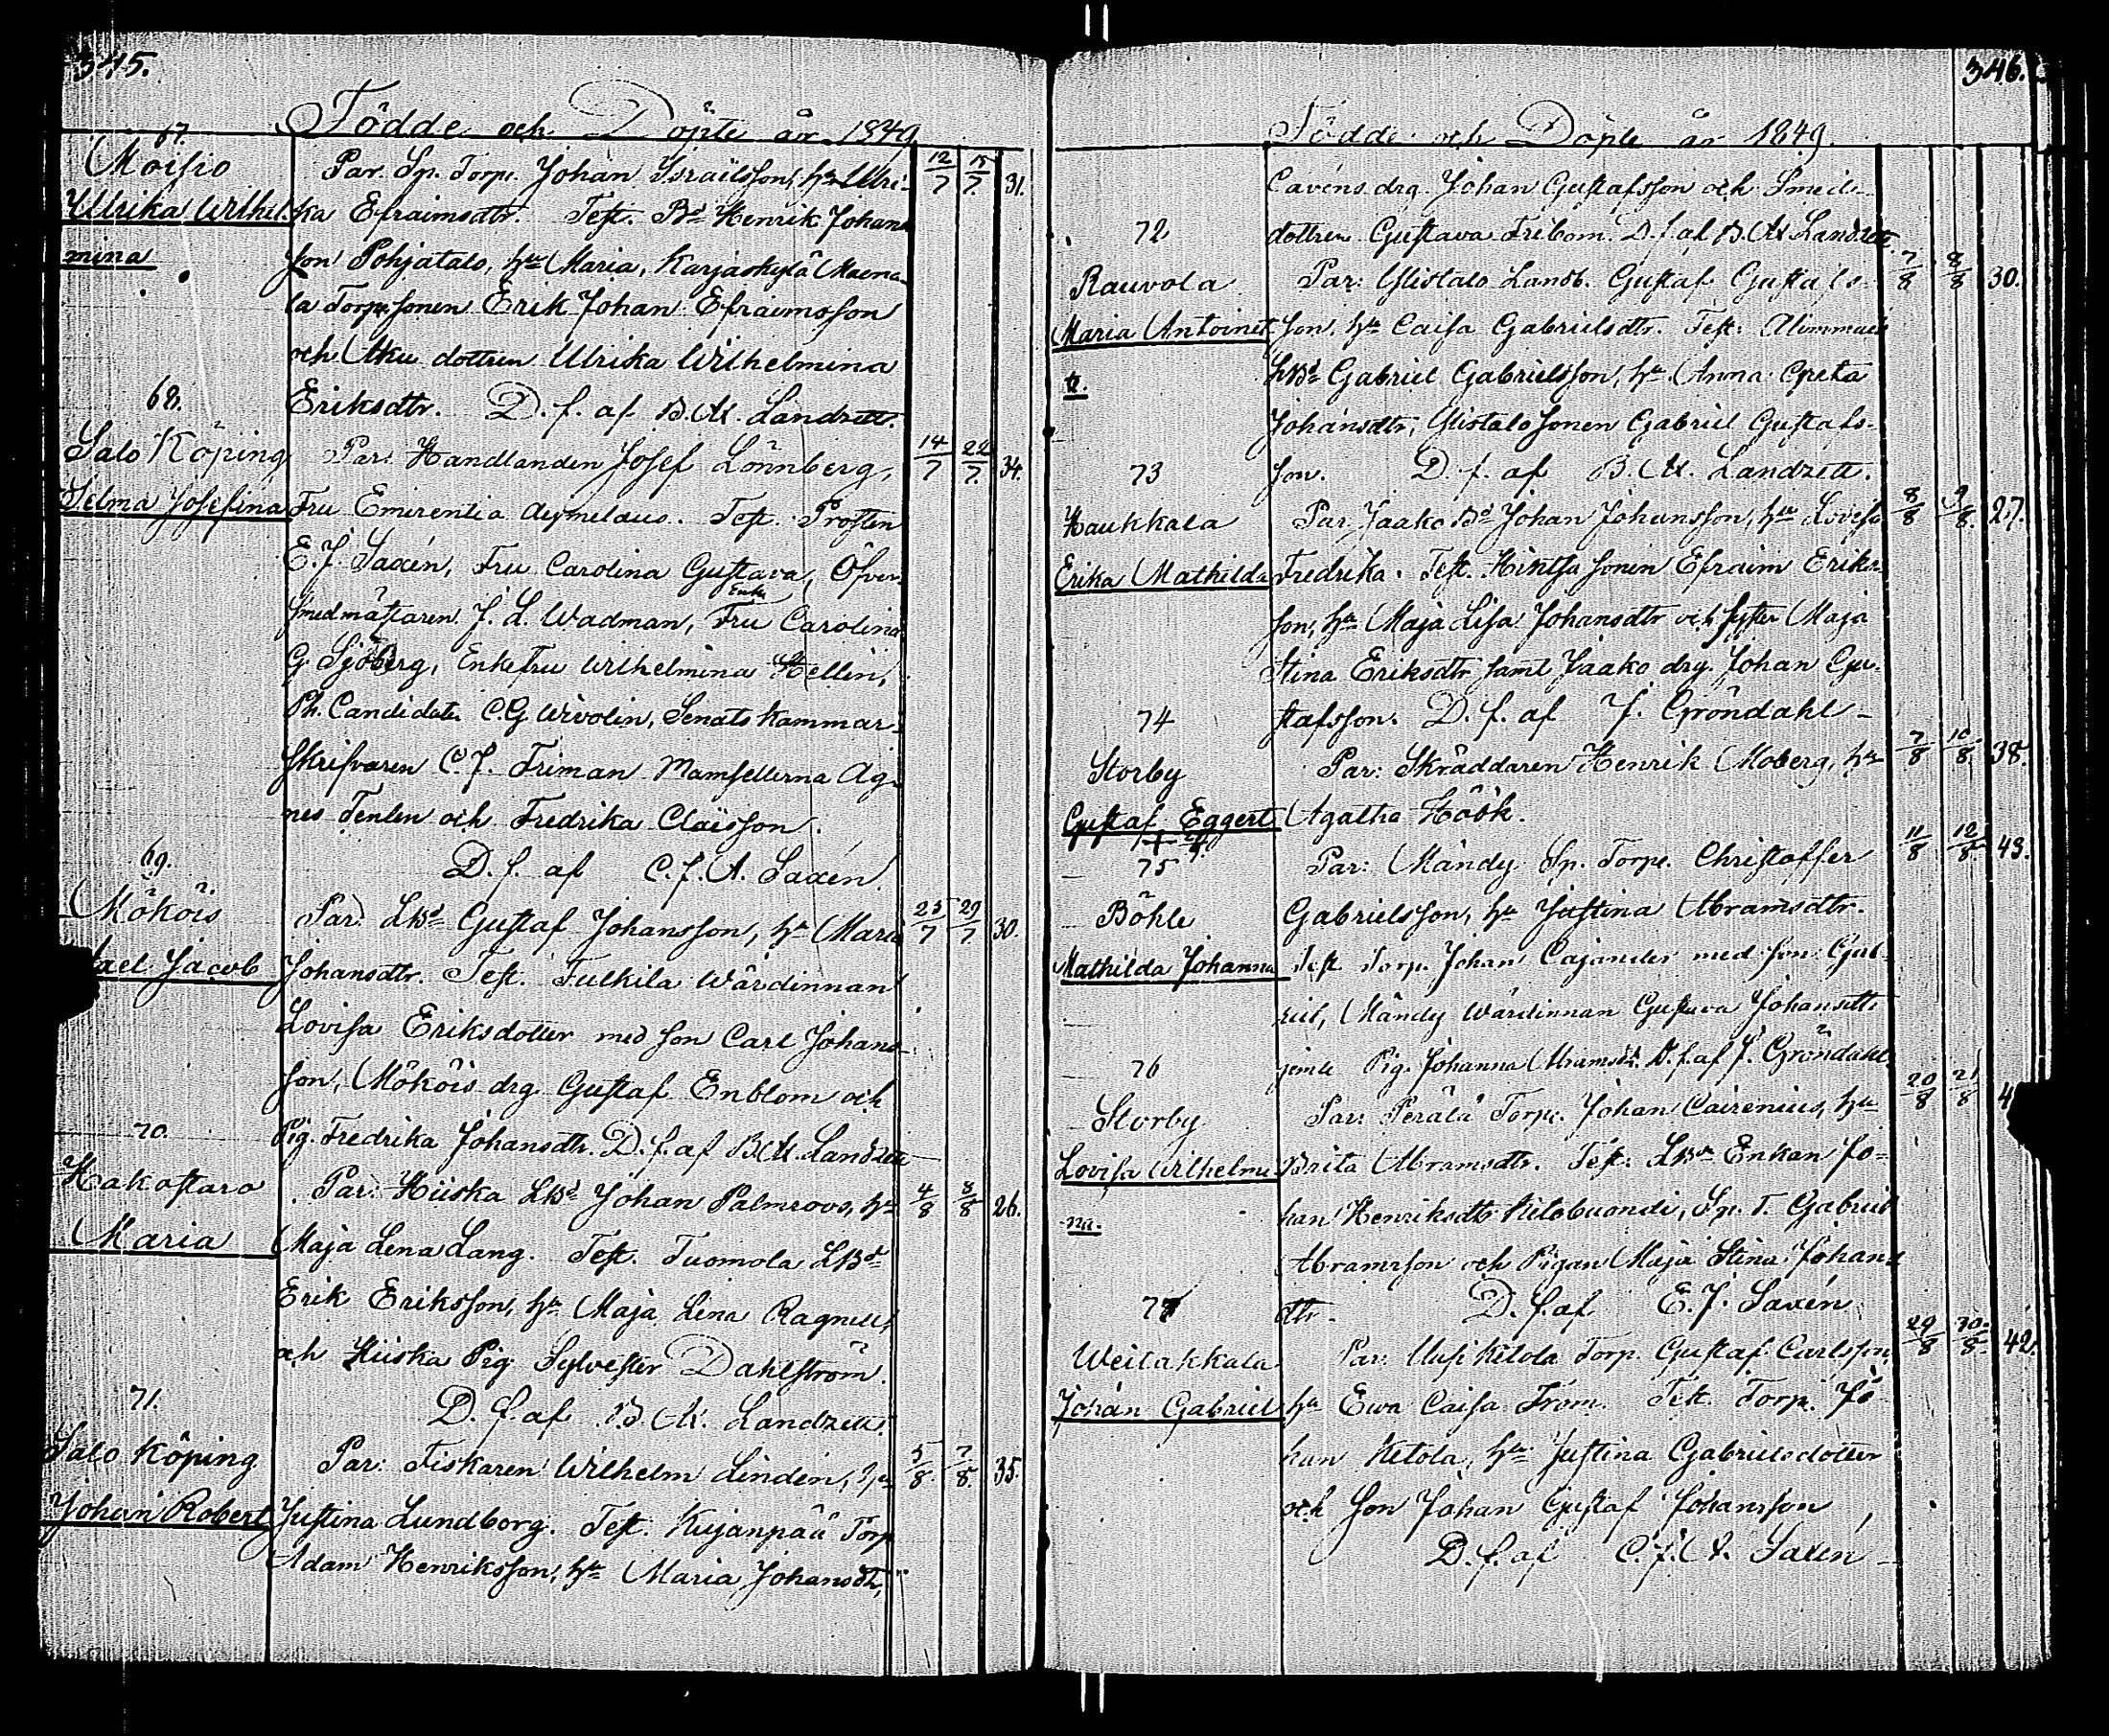 345.
Födde och Döpte år 1849
67.
Moisio Par. Sp. Torp. Johan Israëlsson, h:u Ulri- 12/7 15/7 31.
Ulrika Wilhel- ka Efraimsdtr. Test. Bd Henrik Johans
mina son Pohjatalo, h:u Maria, Karjaskylä Maena-
la Torp.sonen Erik Johan Efraimsson
och Aku dottren Ulrika Wilhelmina
68. Eriksdtr. D. f. af B. A. Landzett.
Salo Köping Par. Handlanden Josef Lönnberg, 14/7 22/7 34.
Selma Josefina Fru Emerentia Aejmelaus. Test. Prosten
E. J. Saxén, Fru Carolina Gustava, Öfver-
smedmästaren J. L. Wadman, Enke Fru Carolina
G. Sjöberg, Enkefru Wilhelmina Hellin,
Ph. Candidaten C. G. Wivolin, Senats Kammar-
skrifvaren C. J. Friman Mamsellerna Ag-
nes Tenlen och Fredrika Claësson.
69. D. f. af C. J. A. Saxén.
Mököis Par. LBd Gustaf Johansson, h:u Maria 23/7 29/7 30.
ael Jacob Johansdtr. Test. Tulkila Wärdinnan
Lovisa Eriksdotter med son Carl Johans-
son, Mököis drg. Gustaf Enblom och
70. Pig. Fredrika Johansdtr. D. f. af B A. Landzett
Hakostaro Par. Hiiska LBd Johan Palmroos, h:u 4/8 8/8 26.
Maria Maja Lena Lang. Test. Tuomola LBd
Erik Eriksson, h:u Maja Lena Ragnell,
och Hiiska Pig. Sylvester Dahlström.
71. D. f. af B A. Landzett.
Salo Köping Par: Fiskaren Wilhelm Linden, h:u 5/8 7/8 35.
Johan Robert Justina Lundborg. Test. Kujanpää Torp
Adam Henriksson, h:u Maria Johansdtr,
346.
Födde och Döpte år 1849.
Cavens drg. Johan Gustafsson och Smeds-
72 dottren Gustava Fribom. D. f. af B. A. Landzett
Rauvola Par: Ylistalo Landb. Gustaf Gustafs- 7/8 8/8 30.
Maria Antoinet- son, h:u Caisa Gabrielsdtr. Test:
te. LBd Gabriel Gabrielsson, h:u Anna Greta
Johansdtr, Ylistalo sonen Gabriel Gustafs-
73 son. D. f. af B. A. Landzett.
Haukkala Par. Jaako Bd Johan Johansson, h:u Lovisa 8/8 9/8 27.
Erika Mathilda Fredrika. Test. Hintsa sonen Efraim Eriks-
son, h:u Maja Lisa Johansdtr och syster Maja
Stina Eriksdtr samt Jaako drg. Johan Gu-
74 stafsson. D. f. af J. Gröndahl
Storby Par: Skräddaren Henrik Moberg, h:u 7/8 10/8 38.
Gustaf Eggert Agatha Höök.
75 Par: Mändy Sp. Torp. Christoffer 11/8 12/8 43.
Böhle Gabrielsson, h:u Justina Abramsdtr.
Mathilda Johanna Test Torp. Johan Cajander med son Gab-
riel, Mändy Wärdinnan Gustava Johansdtr
76 jemte Pig. Johanna Abramsdtr. D. f. af J. Gröndahl
Storby Par: Perälä Torp. Johan Cairenius, h:u 20/8 21/8 4
Lovisa Wilhelmi- Brita Abramsdtr. Test: LBd Enkan Jo-
na. han Henriksdtr , Sp. T. Gabriel
Abramsson och Pigan Maja Stina Johans
77 dtr. D. f. af E. J. Saxén
Weitakkala Par: Uusi Ketola Torp. Gustaf Carlsson, 29/8 30/8 42.
Johan Gabriel h:u Ewa Caisa From. Test. Torp. Jo-
han Ketola, h:u Justina Gabrielsdotter
och son Johan Gustaf Johansson,
D. f. af C. J. A. Saxén